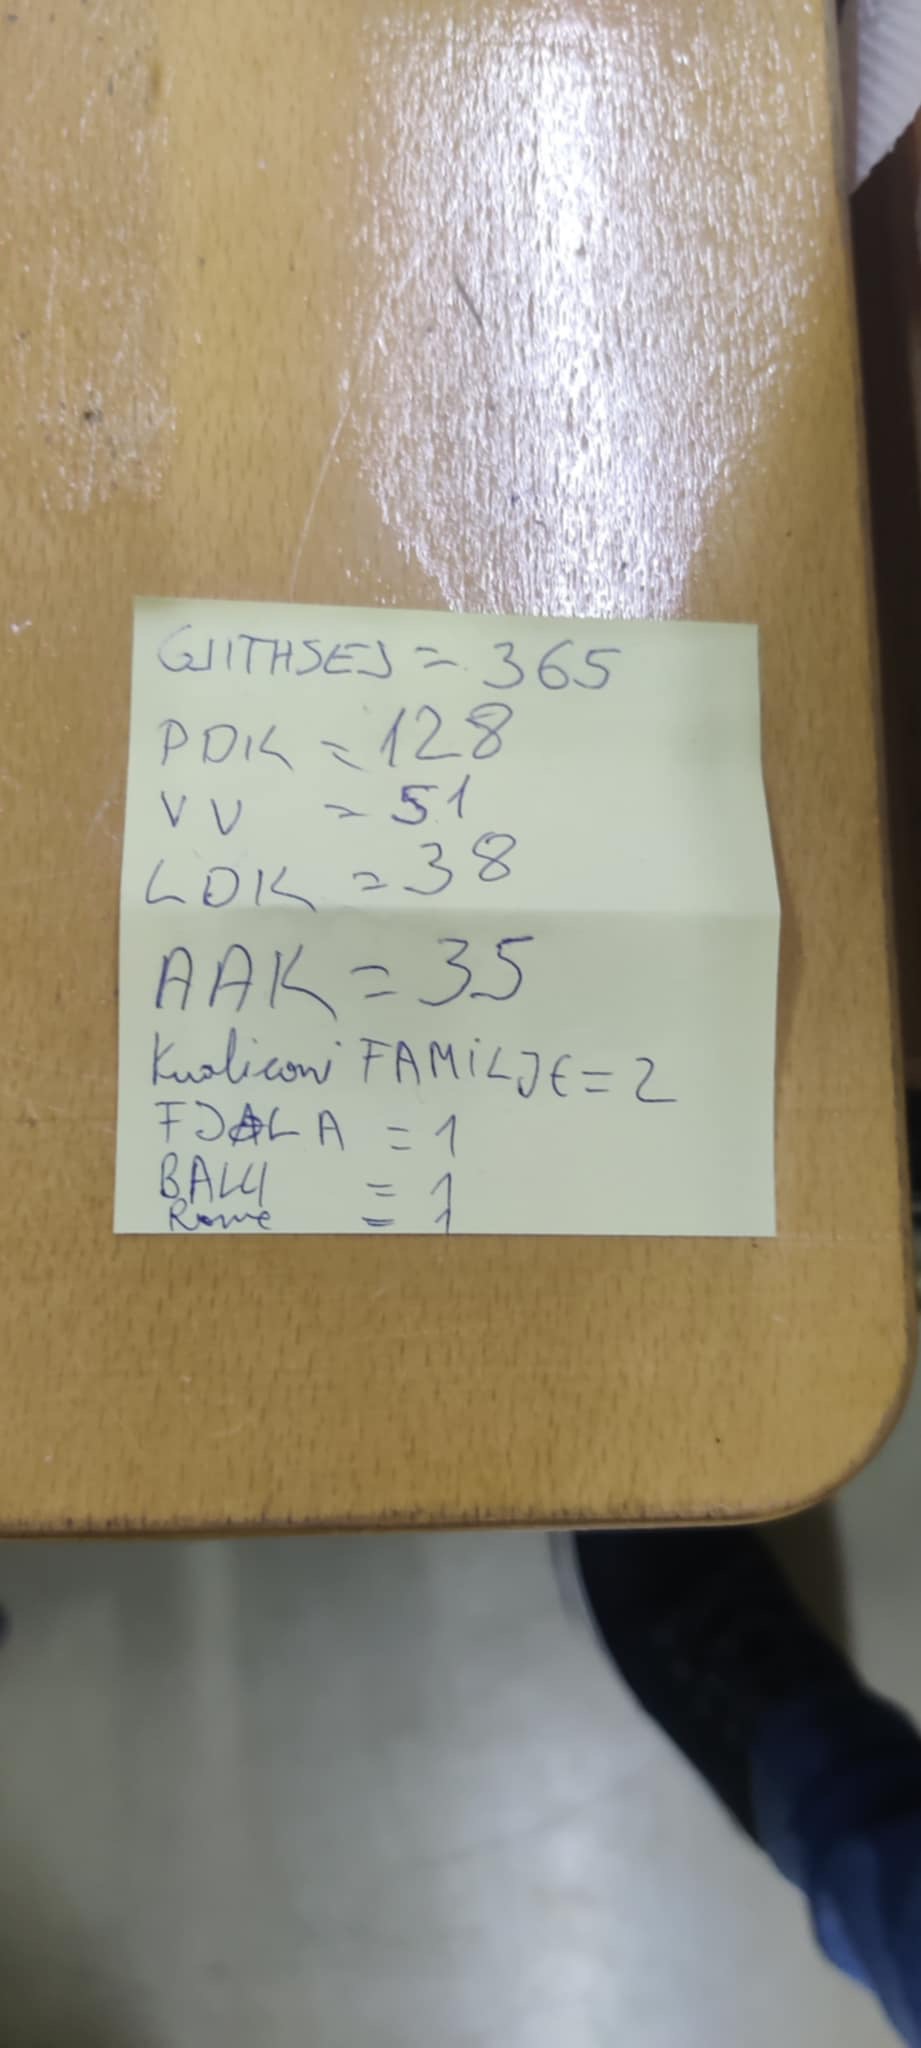 GJITHSEJ = 365
PDK = 128
VV = 51
LDK = 38
AAK = 35
Kualicioni FAMILJE = 2
FJALA = 1
BALLI = 1
Rome = 1